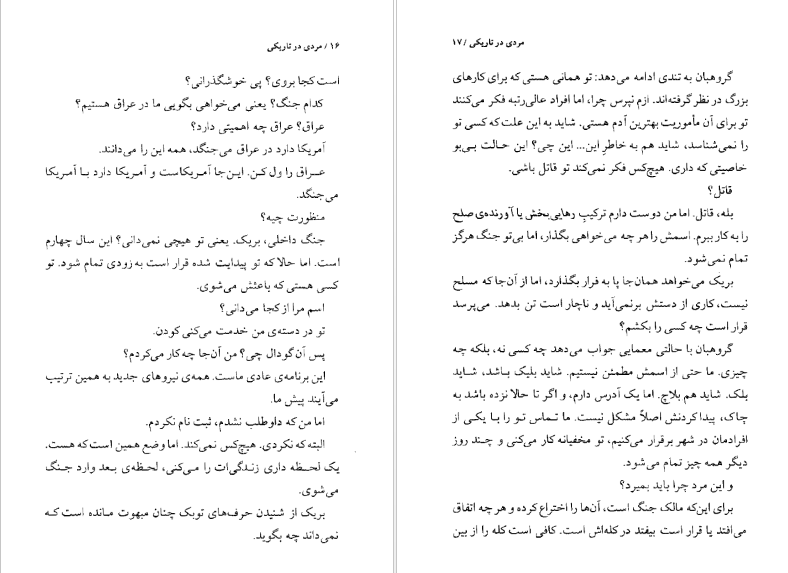 ۱۶ / مردی در تاریکی
است کجا بروی؟ پی خوشگذرانی؟
کدام جنگ؟ یعنی می‌خواهی بگویی ما در عراق هستیم؟
عراق؟ عراق چه اهمیتی دارد؟
آمریکا دارد در عراق می‌جنگد، همه این را می‌دانند.
عراق را ول کن. این‌جا آمریکاست و آمریکا دارد با آمریکا
می‌جنگد.
منظورت چیه؟
جنگ داخلی، بریک. یعنی تو هیچی نمی‌دانی؟ این سال چهارم
است. اما حالا که تو پیدایت شده قرار است به زودی تمام شود. تو
کسی هستی که باعثش می‌شوی.
اسم مرا از کجا می‌دانی؟
تو در دسته‌ی من خدمت می‌کنی کودن.
پس آن گودال چی؟ من آن‌جا چه کار می‌کردم؟
این برنامه‌ی عادی ماست. همه‌ی نیروهای جدید به همین ترتیب
می‌آیند پیش ما.
اما من که داوطلب نشدم، ثبت نام نکردم.
البته که نکردی. هیچ‌کس نمی‌کند. اما وضع همین است که هست.
یک لحظه داری زندگی‌ات را می‌کنی، لحظه‌ی بعد وارد جنگ
می‌شوی.
بریک از شنیدن حرف‌های توبک چنان مبهوت مانده است که
نمی‌داند چه بگوید.
مردی در تاریکی / ۱۷
گروهبان به تندی ادامه می‌دهد: تو همانی هستی که برای کارهای
بزرگ در نظر گرفته‌اند. ازم نپرس چرا، اما افراد عالی‌رتبه فکر می‌کنند
تو برای آن مأموریت بهترین آدم هستی. شاید به این علت که کسی تو
را نمی‌شناسد، شاید هم به خاطر این... این چی؟ این حالت بی‌بو
خاصیتی که داری. هیچ‌کس فکر نمی‌کند تو قاتل باشی.
قاتل؟
بله، قاتل. اما من دوست دارم ترکیبِ رهایی‌بخش یا آورنده‌ی صلح
را به کار ببرم. اسمش را هر چه می‌خواهی بگذار، اما بی‌تو جنگ هرگز
تمام نمی‌شود.
بریک می‌خواهد همان‌جا پا به فرار بگذارد، اما از آن‌جا که مسلح
نیست، کاری از دستش برنمی‌آید و ناچار است تن بدهد. می‌پرسد
قرار است چه کسی را بکشم؟
گروهبان با حالتی معمایی جواب می‌دهد چه کسی نه، بلکه چه
چیزی. ما حتی از اسمش مطمئن نیستیم. شاید بلیک باشد، شاید
بلک. شاید هم بلاچ. اما یک آدرس دارم، و اگر تا حالا نزده باشد به
چاک، پیدا کردنش اصلاً مشکل نیست. ما تماس تو را با یکی از
افرادمان در شهر برقرار می‌کنیم، تو مخفیانه کار می‌کنی و چند روز
دیگر همه چیز تمام می‌شود.
و این مرد چرا باید بمیرد؟
برای این‌که مالک جنگ است، آن‌ها را اختراع کرده و هر چه اتفاق
می‌افتد یا قرار است بیفتد در کله‌اش است. کافی است کله را از بین